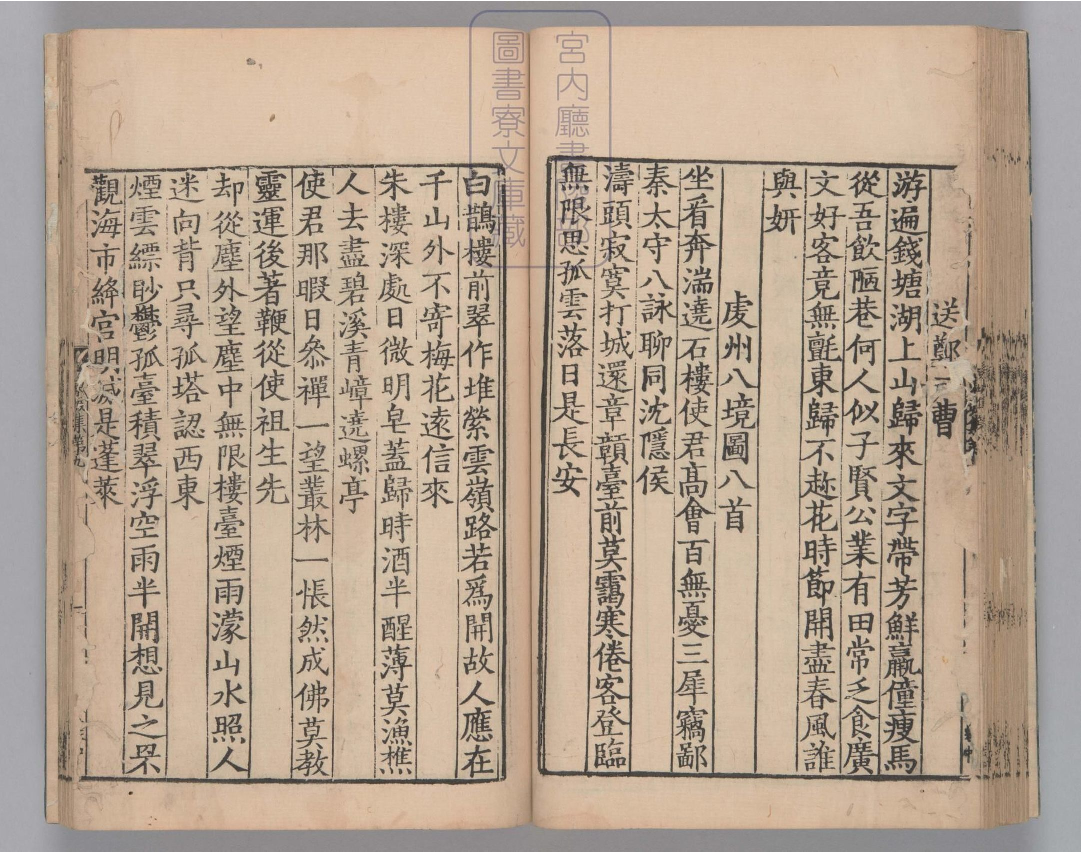 宮内廳書陵部
圖書寮文庫藏
送鄭曹
游遍錢塘湖上山歸來文字帶芳鮮羸僮瘦馬
從吾飲陋巷何人似子賢公業有田常乏食廣
文好客竟無氈東歸不趂花時節開盡春風誰
與妍
虔州八境圖八首
坐看奔湍遶石樓使君髙會百無憂三犀竊鄙
秦太守八詠聊同沈隱侯
濤頭寂寞打城還章贛臺前莫靄寒倦客登臨
無限思孤雲落日是長安
白鵲樓前翠作堆縈雲嶺路若爲開故人應在
千山外不寄梅花逺信來
朱樓深處日微明皂蓋歸時酒半醒薄莫漁樵
人去盡碧溪青嶂遶螺亭
使君那暇日叅禪一望叢林一悵然成佛莫教
靈運後著鞭從使祖生先
却從塵外望塵中無限樓臺煙雨濛山水照人
迷向背只尋孤塔認西東
煙雲縹眇鬱孤臺積翠浮空雨半開想見之罘
觀海市絳宮明滅是蓬萊